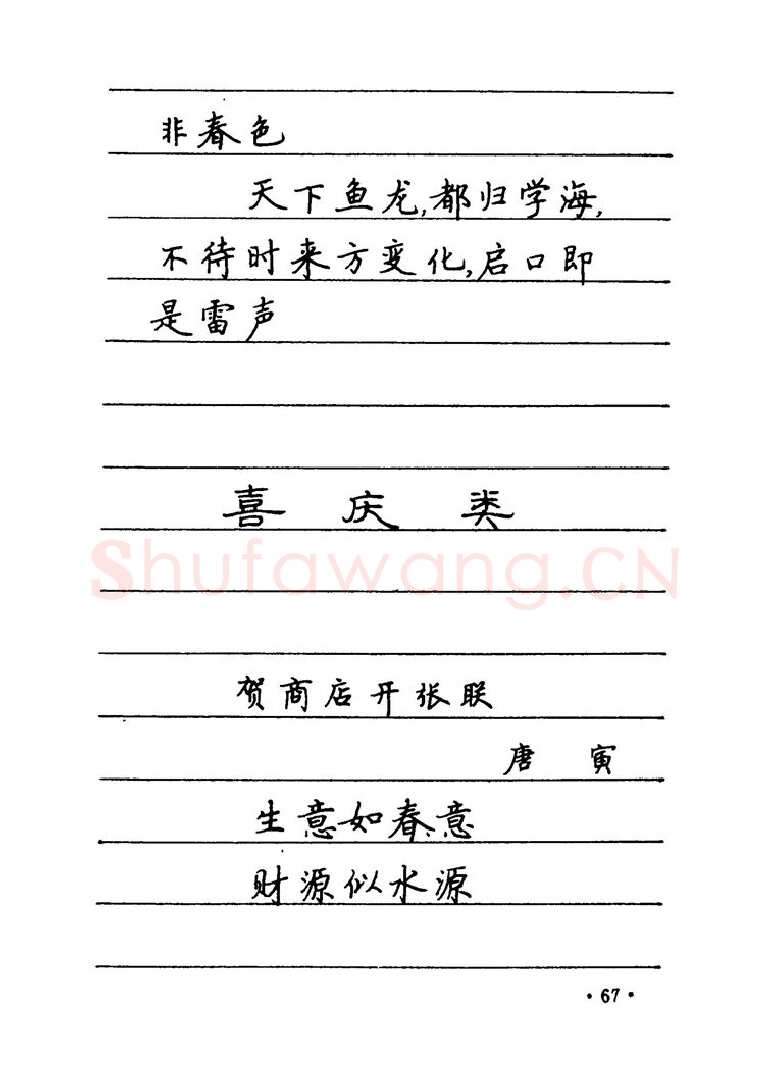 非春色
天下鱼龙,都归学海,
不待时来方变化,启口即
是雷声
喜庆类
Shufawang.CN
贺商店开张联
唐 寅
生意如春意
财源似水源
·67·